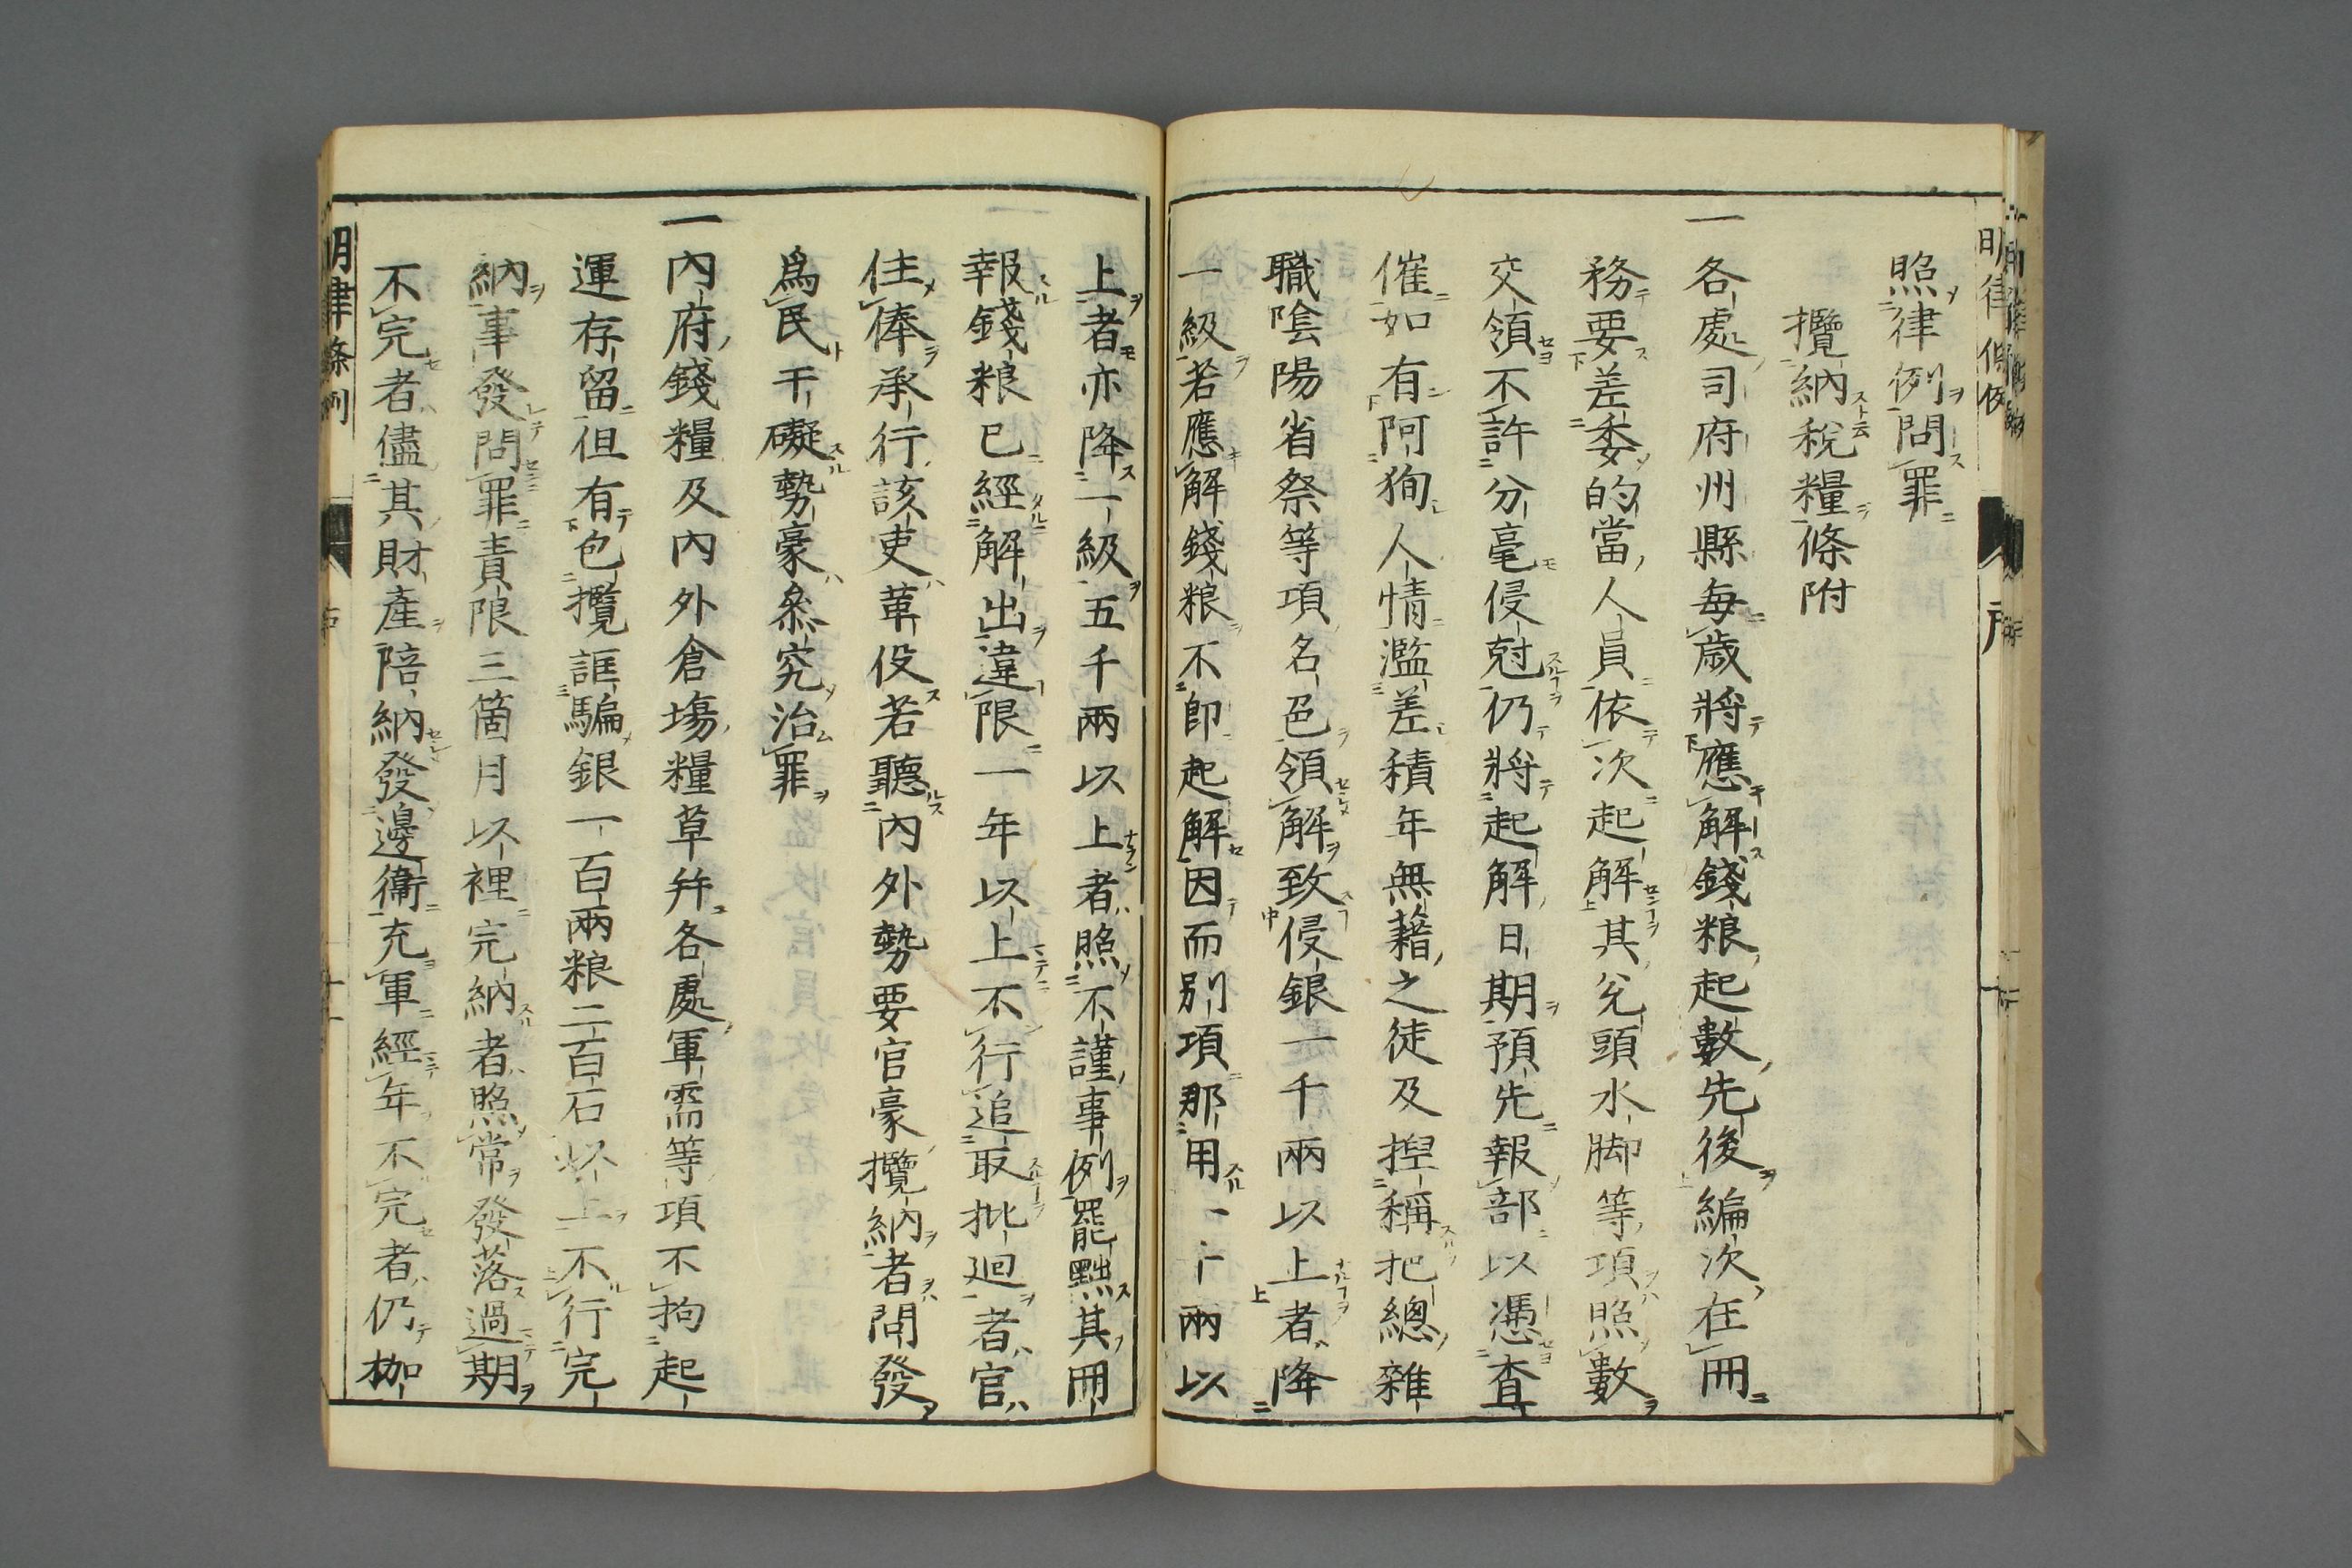 照律例問罪
攬納稅糧條附
一各處司府州縣每歲將應解錢粮起數先後編次在冊
務要差委的當人員依次起解其兊頭水脚等項照數
交領不許分毫侵尅仍將起解日期預先報部以憑査
催如有阿狥人情濫差積年無藉之徒及揑稱把總雜
職陰陽省祭等項名色領解致侵銀一千兩以上者降
一級若應解錢粮不卽起解因而别項那用一千兩以
上者亦降一級五千兩以上者照不謹事例罷黜其冊
報錢粮已經解出違限一年以上不行追取批迴者官
住俸承行該吏革役若聽內外勢要官豪攬納者問發
爲民干礙勢豪叅究治罪
一內府錢糧及內外倉塲糧草并各處軍需等項不拘起
運存留但有包攬誆騙銀一百兩粮二百石以上不行完
納事發問罪責限三箇月以裡完納者照常發落過期
不完者儘其財產陪納發邊衞充軍經年不完者仍枷
明律條例